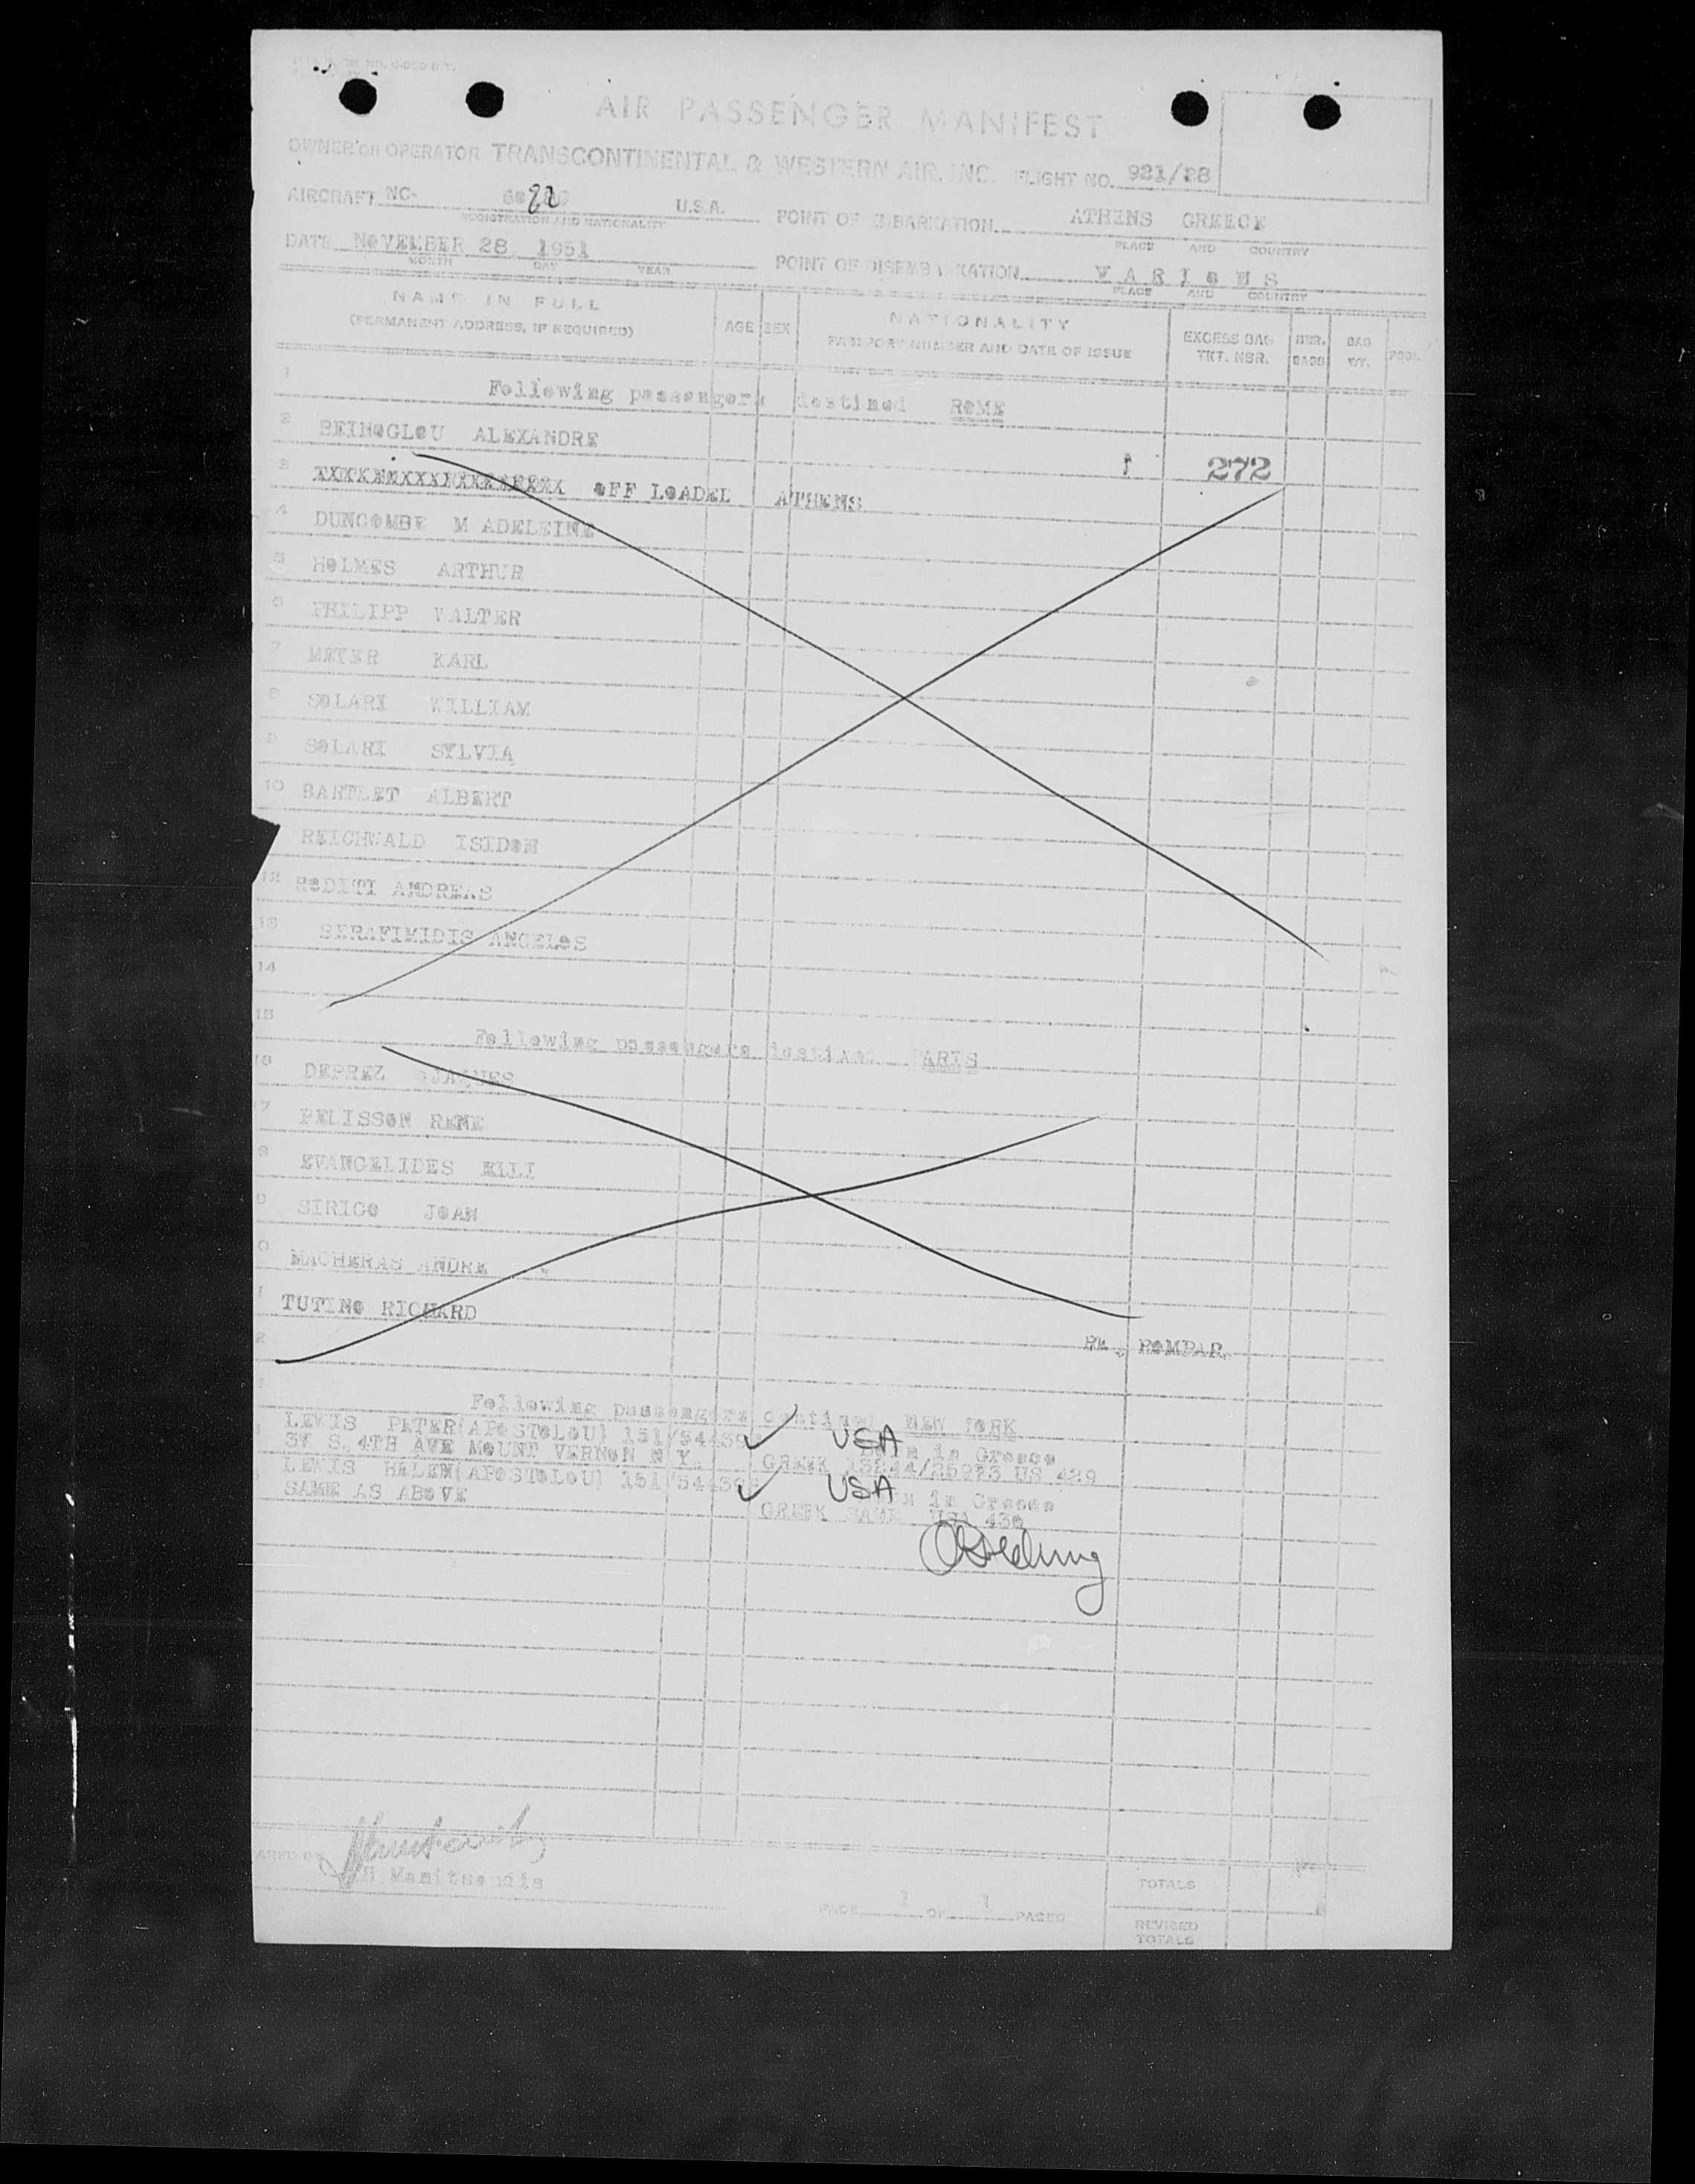 AIR PASSENGER MANIFEST
OWNER OR OPERATOR TRANSCONTINENTAL & WESTERN AIR. INC. FLIGHT NO. 921/28
AIRCRAFT NC- U.S.A. POINT OF EMBARKATION ATHENS GREECE
REGISTRATION AND NATIONALITY PLACE AND COUNTRY
DATE NOVEMBER 28, 1951 POINT OF DISEMBARKATION VARIOUS
MONTH DAY YEAR PLACE AND COUNTRY
NAME IN FULL
(PERMANENT ADDRESS, IF REQUIRED)
AGE SEX
NATIONALITY
PASSPORT NUMBER AND DATE OF ISSUE
EXCESS BAG
TKT. NBR.
NBR.
BAGS
BAG
WT.
1 Following passengers destined ROME
2 BEINOGLOU ALEXANDRE
272
3 OFF LOADED ATHENS
4 DUNCOMBE M ADELEINE
5 HOLMES ARTHUR
6 PHILIPP WALTER
7 MEYER KARL
8 SOLARI WILLIAM
9 SOLARI SYLVIA
10 BARTLET ALBERT
REICHWALD ISIDOR
12 RODITI ANDREAS
13 SERAFIMIDIS ANGELOS
14
15 Following passengers destined PARIS
16 DEPREZ JAQUES
7 PELISSON RENE
8 EVANGELIDES ELLI
9 SIRIGO JOAN
0 MACHERAS ANDRE
1 TUTINO RICHARD
2
Following passengers destined NEW YORK
LEWIS PETER(APOSTOLOU) 151/54439 USA Born in Greece
37 S. 4TH AVE MOUNT VERNON N Y. GREEK 13244/25273 US 429
LEWIS HELEN(APOSTOLOU) 151/54439 USA Born in Greece
SAME AS ABOVE GREEK SAME USA 430
H Manitsoudis
PAGE 1 OF 1 PAGES
TOTALS
REVISED
TOTALS